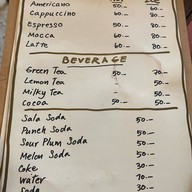 Americano 50.- 60.-
Cappuccino 60.- 80.-
Espresso 50.- 80.-
Mocca 60.- 80.-
Latte 60.- 80.-
BEVERAGE
Green Tea 50.- 70.-
Lemon Tea - 50.-
Milky Tea - 50.-
Cocoa 50.- 50.-
Sala Soda 50.-
Punch Soda 50.-
Sour Plum Soda 50.-
Melon Soda 50.-
Coke 30.-
Water 10.-
Soda 30.-